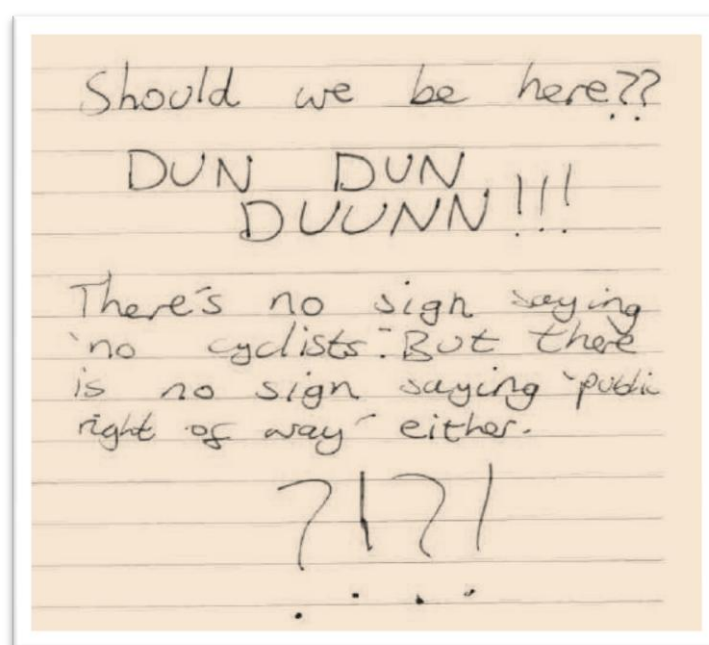 Should we be here??
DUN DUN
DUUNN!!!
There's no sign saying
'no cyclists'. But there
is no sign saying 'public
right of way' either.
?!?!